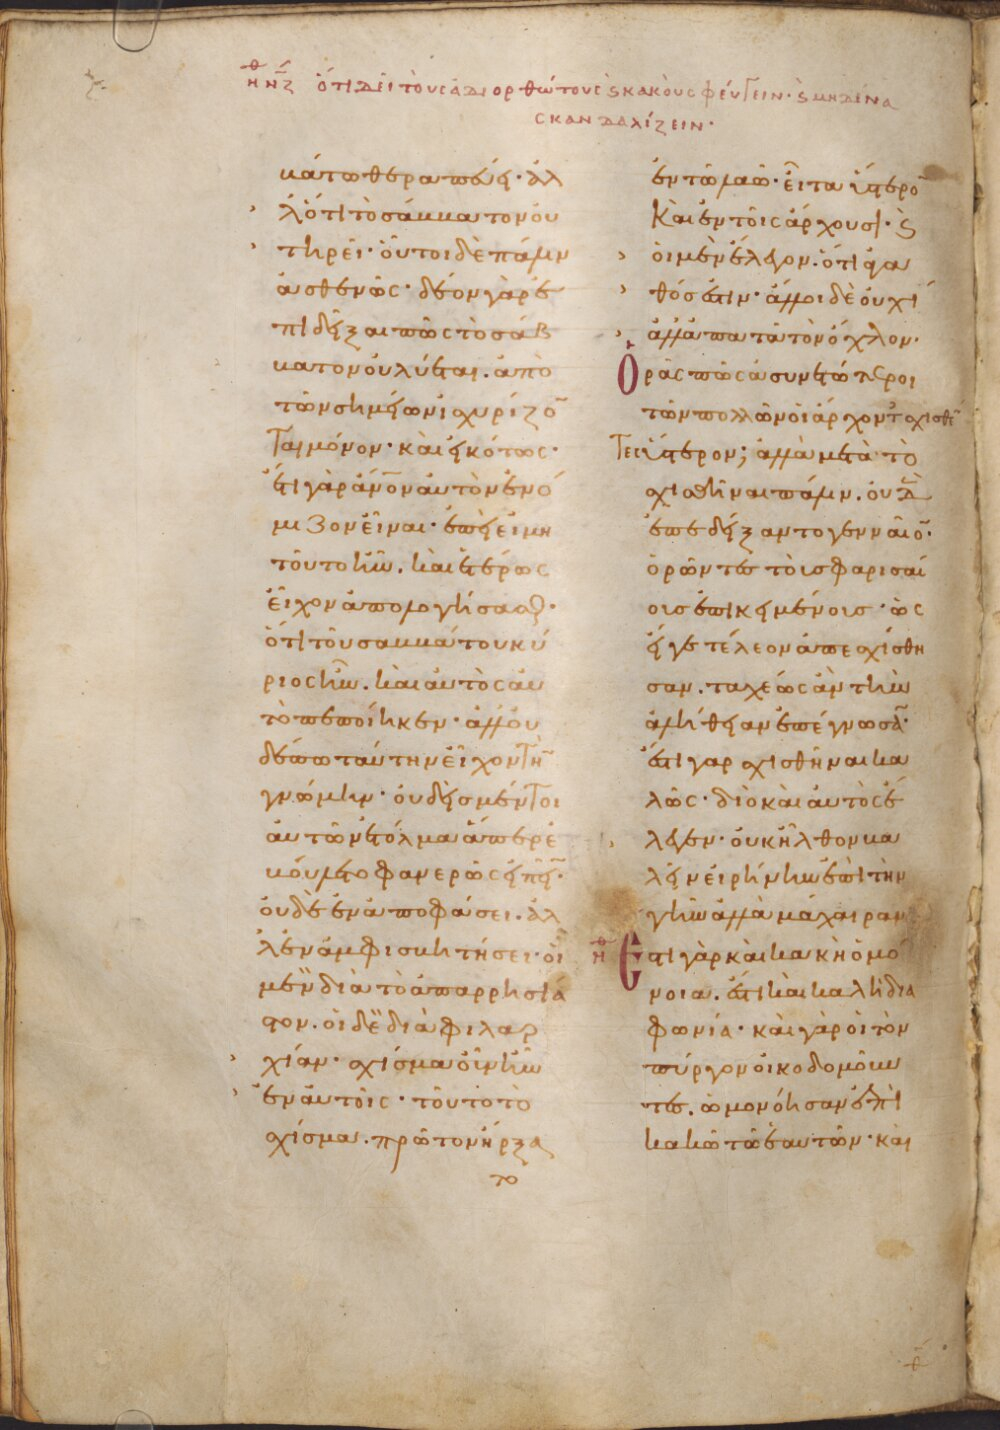 ἠθ ΝΖ ὅτι δεῖ τοὺς ἀδιορθώτους ϗ κακοὺς φεύγειν· ϗ μηδένα
σκανδαλίζειν·
κάτω θεραπεύει· ἀλ
λ' ὅτι τὸ σάββατον οὐ
τηρεῖ· οὗτοι δὲ πάλιν
ἀσθενῶς· δέον γὰρ ἐ
πιδεῖξαι πῶς τὸ σάβ
βατον οὐ λύεται. ἀπὸ
τῶν σημείων ἰσχυρίζο̅
ται μόνον· καὶ εἰκότως·
ἔτι γὰρ ἄν̅ον αὐτὸν ἐνό
μιζον εἶναι· ἐπεὶ εἰ μὴ
τοῦτο ἦν. καὶ ἑτέρως
εἶχον ἀπολογήσασθ·
ὅτι τοῦ σαββάτου κύ
ριος ἦν. καὶ αὐτὸς αὐ
τὸ πεποίηκεν· ἀλλ' οὐ
δέπω ταύτην εἶχον τὴ̅
γνώμην· οὐδεὶς μέντοι
αὐτῶν ἐτόλμα ἅπερ ἐ
βούλετο φανερῶς εἰπεῖ̅·
οὐδὲ ἐν ἀποφάσει. ἀλ
λ' ἐν ἀμφισβητήσει· οἱ
μὲν διὰ τὸ ἀπαρρησία
στον. οἱ δὲ διὰ φιλαρ
χίαν· σχίσμα οὖν ἦν
ἐν αὐτοῖς· τοῦτο τὸ
σχίσμα. πρῶτον ἤρξα
το
ἐν τῷ λαῷ· εἶτα ὕστερο̅
καὶ ἐν τοῖς ἄρχουσι· ϗ
οἱ μὲν ἔλεγον. ὅτι ἀγα
θός ἐστιν· ἄλλοι δὲ οὐχί
ἀλλὰ πλανᾷ τὸν ὄχλον·
Ὁρᾷς πῶς ἀσυνετώτεροι
τῶν πολλῶν οἱ ἄρχοντ σχισθέ̅
τες ὕστερον; ἀλλὰ μετὰ τὸ
σχισθῆναι πάλιν. οὐδὲ̅
ἐπεδείξαντο γενναῖο̅·
ὁρῶντες τοῖς φαρισαί
οις ἐπικειμένοις· ὡς
εἴγε τέλεον ἀπεσχίσθη
σαν. ταχέως ἂν τὴν
ἀλήθειαν ἐπέγνωσα̅·
ἔστι γὰρ σχισθῆναι κα
λῶς· διὸ καὶ αὐτὸς ἔ
λεγεν· οὐκ ἦλθον βα
λεῖν εἰρήνην ἐπὶ τὴν
γῆν ἀλλὰ μάχαιραν
ἠθ Ἔστι γὰρ καὶ κακὴ ὁμό
νοια. ἔστι καὶ καλὴ δια
φωνία· καὶ γὰρ οἱ τὸν
πύργον οἰκοδομοῦν
τες. ὡμονόησαν ἐπὶ
κακῷ τῷ ἑαυτῶν· καὶ